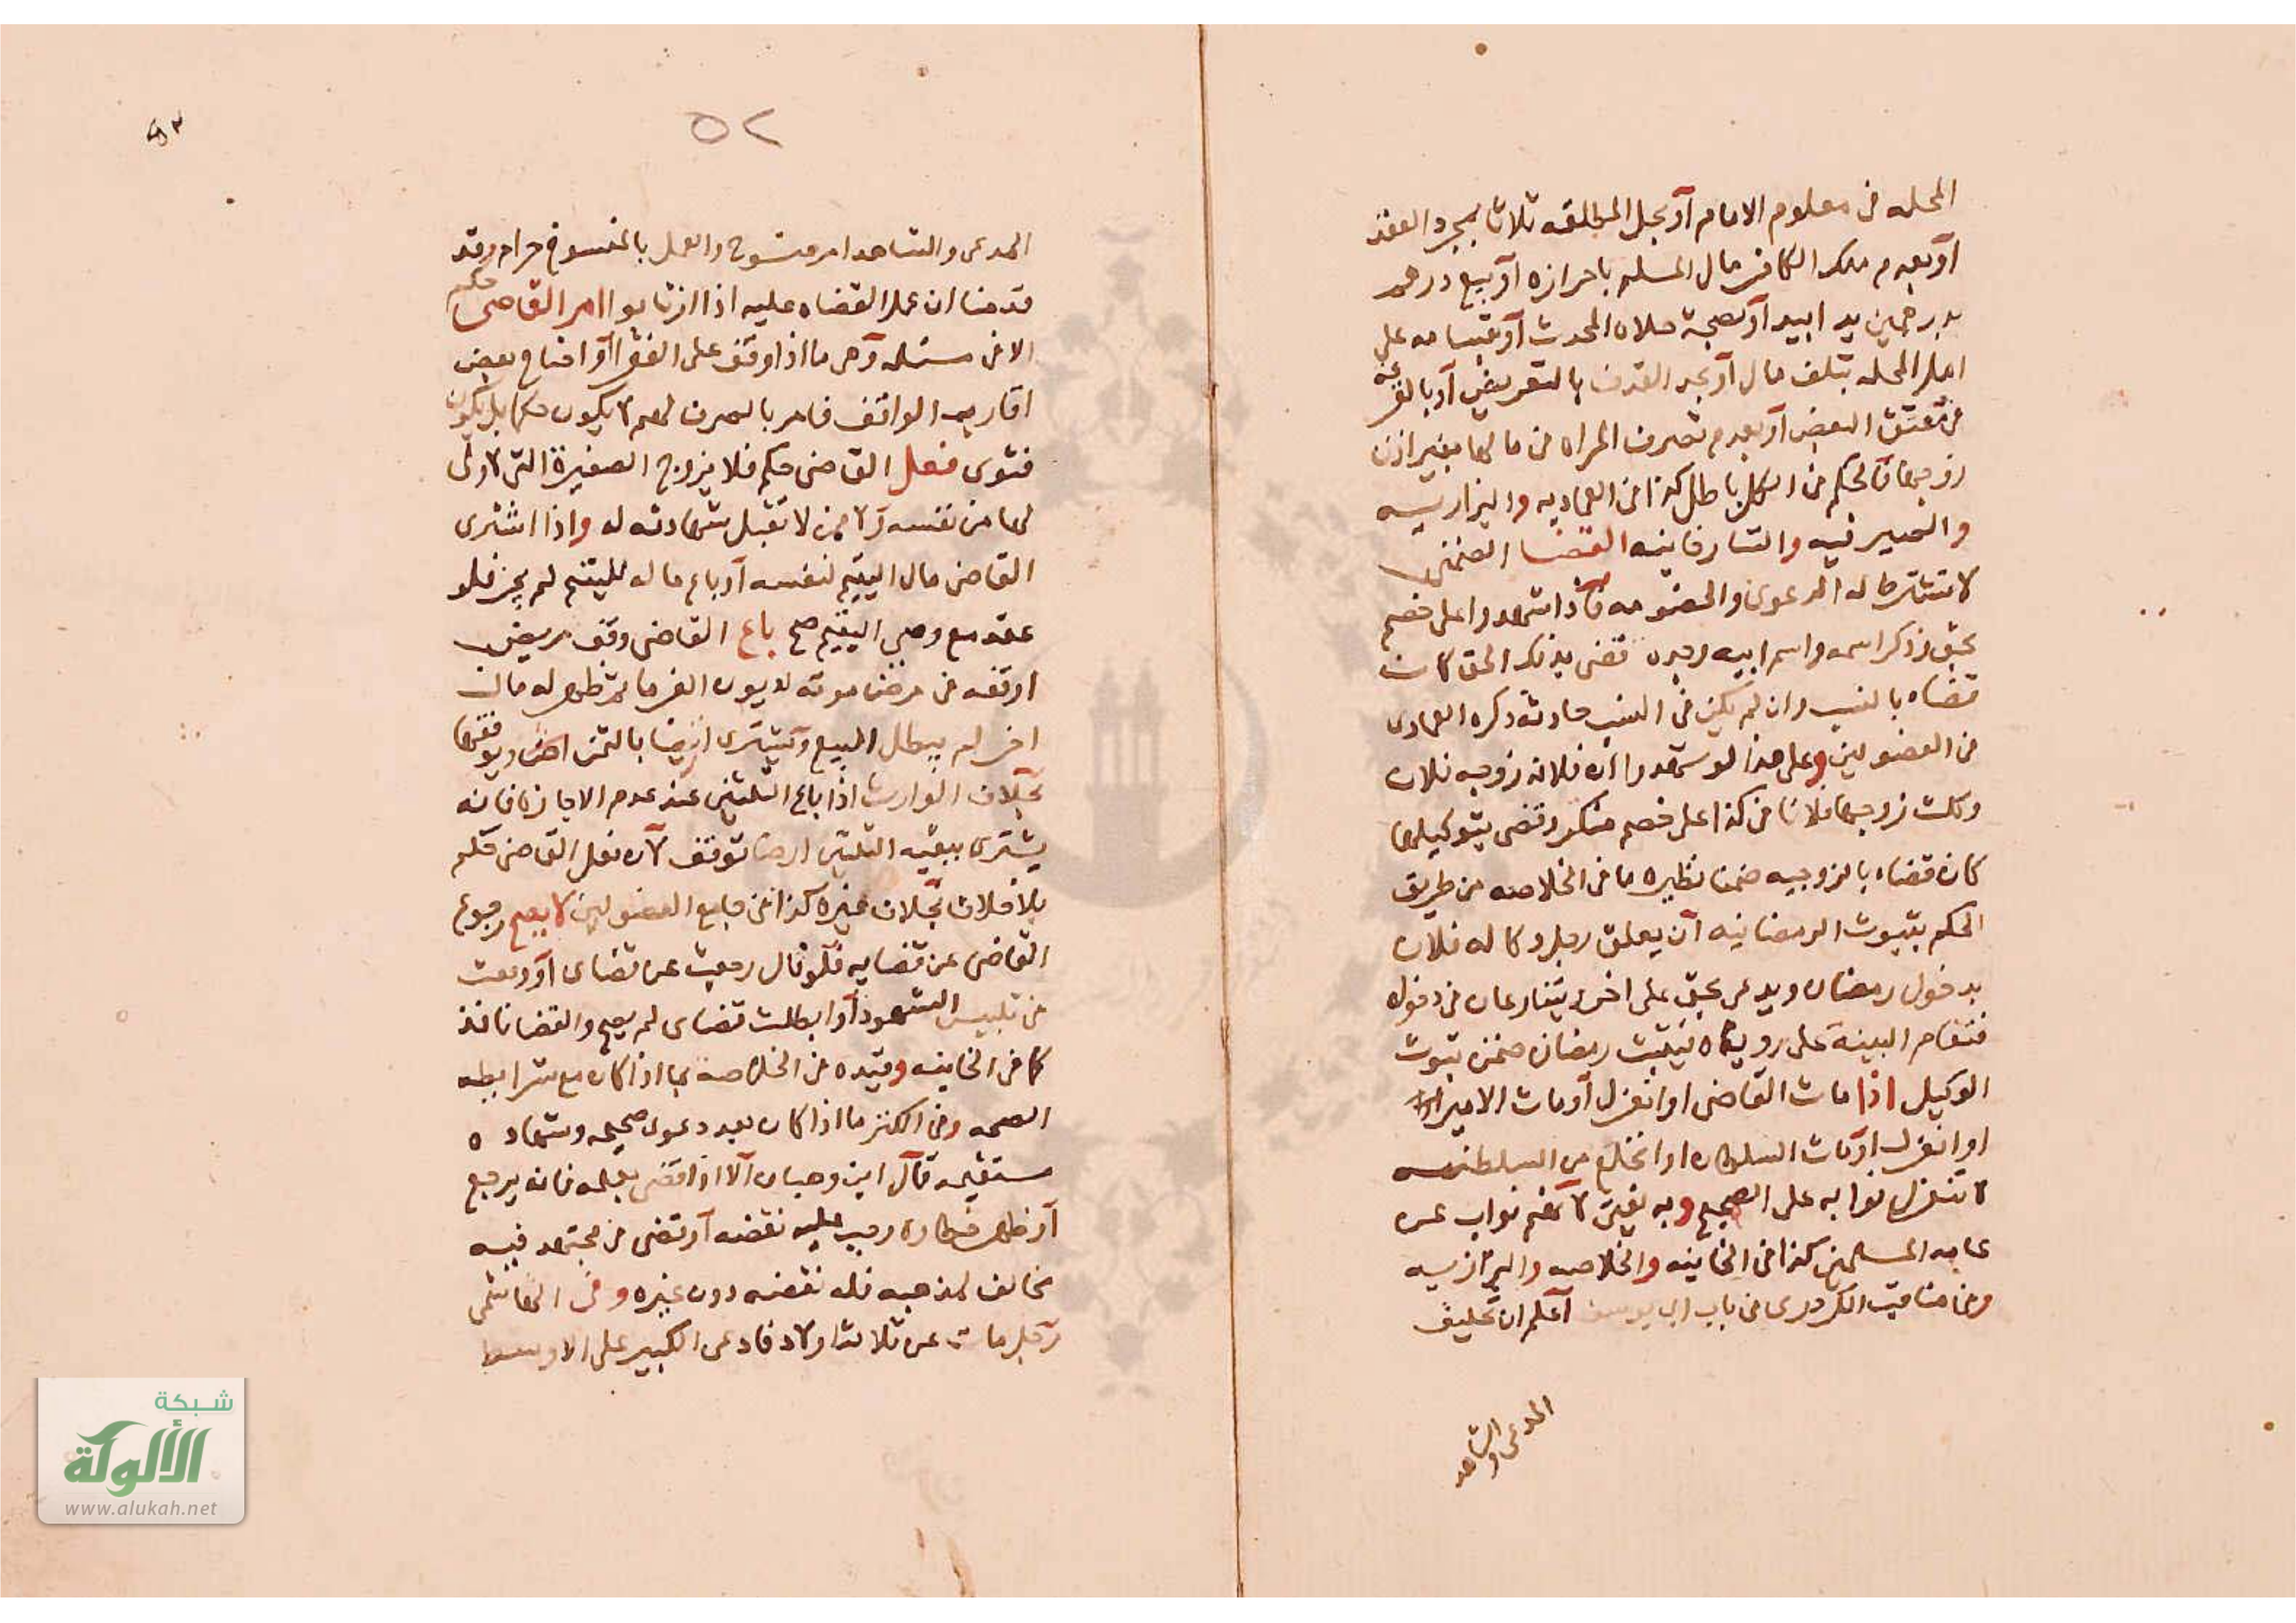 المحله فى معلوم الامام آو بحل المطلقه ثلاثا بمجرد العقد
آو بعدم ملك الكافر مال المسلم باحرازه آو ببيع درهم
بدرهمين يدا بيد آو بصحة صلاه المحدث آو بقسامه على
اهل المحله بتلف مال آو بحد القدف بالتعريض آو بالقرعه
فى معتق البعض آو بعدم تصرف المراه فى مالها بغير اذن
زوجها فالحكم فى الكل باطل كذا فى العماديه والبزازيه
والصيرفيه والتتارخانيه القضا الضمنى
لا تشترط له الدعوى والخصومه فاذا شهدوا على خصم
بحق وذكر اسمه واسم ابيه وجده قضى بذلك الحق كان
قضاه بالنسب وان لم يكن فى النسب حادثه ذكره العمادى
فى الفصولين وعلى هذا لو شهدوا ان فلانه زوجه فلان
وكلت زوجها فلانا فى كذا على خصم منكر وقضى بتوكيلها
كان قضاء بالزوجيه ضمنا نظيره ما فى الخلاصه من طريق
الحكم بثبوت الرمضانيه آن يعلق رجل وكاله فلان
بدخول رمضان ويدعى بحق على اخر ويتنازعان فى دخوله
فتقام البينة على رويته فيثبت رمضان ضمن ثبوت
الوكيل اذا مات القاضى او انعزل آو مات الامير
او انعزل او مات السلطان او انخلع من السلطنه
لا تنعزل نوابه على الصحيح وبه يفتى لآنهم نواب عن
عامه المسلمين كذا فى الخانيه والخلاصه والبزازيه
وفى مناقب الكردرى فى باب ابى يوسف آعلم ان تحليف
المدعى والشاهد
٥٢
المدعى والشاهد امر منسوخ والعمل بالمنسوخ حرام وقد
قدمنا ان محل القضاه عليه اذا ارتابوا امر القاضى حكم
الا فى مسئله وهى ما اذا وقف على الفقرا آو احتاج بعض
اقارب الواقف فامر بالصرف لهم لا يكون حكما بل يكون
فتوى فعل القاضى حكم فلا يزوج الصغيرة التى لا ولى
لها من نفسه ولا ممن لا تقبل شهادته له واذا اشترى
القاضى مال اليتيم لنفسه آو باع ماله لليتيم لم يجز فلو
عقد مع وصى اليتيم صح باع القاضى وقف مريض
اوقفه فى مرض موته لديون الغرما ثم ظهر له مال
اخر لم يبطل البيع ويشترى ارضا بالثمن اخرى ويوقفها
بخلاف الوارث اذا باع الثلثين عند عدم الاجازه فانه
يشترى بقيه الثلثين ارضا توقف لآن فعل القاضى حكم
بلا خلاف بخلاف غيره كذا فى جامع الفصولين لا يصح رجوع
القاضى عن قضايه فلو قال رجعت عن قضاى آو وقعت
فى تلبيس الشهود آو ابطلت قضاى لم يصح والقضا نافذ
كما فى الخانيه وقيده فى الخلاصه بما اذا كان مع شرايط
الصحه وفى الكنز ما اذا كان بعد دعوى صحيحه وشهاده
مستقيمه قال ابن وهبان آلا اذا قضى بعلمه فانه يرجع
آو ظهر خطاوه وجب عليه نقضه آو قضى فى مجتهد فيه
مخالف لمذهبه فله نقضه دون غيره وفى
رجل مات عن ثلاثه اولاد فادعى الكبير على الاوسط
شبكة
الألوكة
www.alukah.net